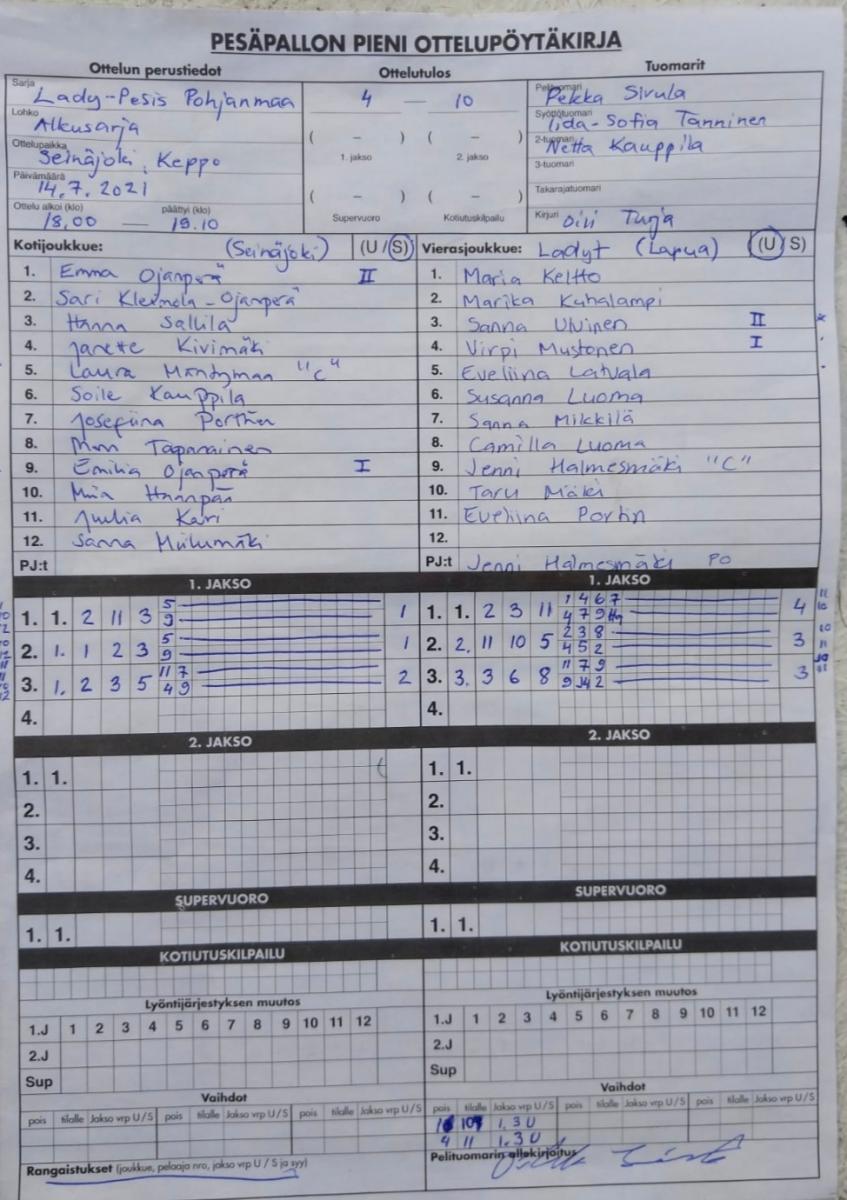 PESÄPALLON PIENI OTTELUPÖYTÄKIRJA
Ottelun perustiedot Ottelutulos Tuomarit
Sarja Lady-Pesis Pohjanmaa 4 — 10 Pelituomari Pekka Sivula
Lohko Alkusarja ( – ) ( – ) Syöttötuomari Iida-Sofia Tanninen
Ottelupaikka Seinäjoki, Keppo 1. jakso 2. jakso 2-tuomari Netta Kauppila
3-tuomari
Päivämäärä 14.7.2021 ( – ) ( – ) Takarajatuomari
Ottelu alkoi (klo) 18.00 — päättyi (klo) 19.10 Supervuoro Kotiutuskilpailu Kirjuri Oivi Turja
Kotijoukkue: (Seinäjoki) (U / S) Vierasjoukkue: Ladyt (Lapua) (U / S)
1. Emma Ojanperä II 1. Maria Keltto
2. Sari Klemola-Ojanperä 2. Marika Kuhalampi
3. Hanna Sallila 3. Sanna Ulvinen II
4. Janette Kivimäki 4. Virpi Mustonen I
5. Laura Mäntymaa "C" 5. Eveliina Latvala
6. Soile Kauppila 6. Susanna Luoma
7. Josefiina 7. Sanna Mikkilä
8. Tapanainen 8. Camilla Luoma
9. Emilia Ojanperä I 9. Jenni Halmesmäki "C"
10. Miia 10. Taru Mäki
11. Julia Kari 11. Eveliina Portin
12. Sanna 12.
PJ:t PJ:t Jenni Halmesmäki PO
1. JAKSO 1. JAKSO
1. 1. 2 11 3 5 9 1 1. 1. 2 3 11 1 4 6 7 4 7 9 4
2. 1. 1 2 3 5 9 1 2. 2. 11 10 5 2 3 8 4 5 2 3
3. 1. 2 3 5 11 7 4 9 2 3. 3. 3 6 8 11 7 9 9 2 3
4. 4.
2. JAKSO 2. JAKSO
1. 1. 1. 1.
2. 2.
3. 3.
4. 4.
SUPERVUORO SUPERVUORO
1. 1. 1. 1.
KOTIUTUSKILPAILU KOTIUTUSKILPAILU
Lyöntijärjestyksen muutos Lyöntijärjestyksen muutos
1.J 1 2 3 4 5 6 7 8 9 10 11 12 1.J 1 2 3 4 5 6 7 8 9 10 11 12
2.J 2.J
Sup Sup
Vaihdot Vaihdot
pois tilalle Jakso vrp U / S pois tilalle Jakso vrp U / S pois tilalle Jakso vrp U / S pois tilalle Jakso vrp U / S pois tilalle Jakso vrp U / S pois tilalle Jakso vrp U / S
10 1. 3 U
4 11 1. 3 U
Rangaistukset (joukkue, pelaaja nro, jakso vrp U / S ja syy) Pelituomarin allekirjoitus